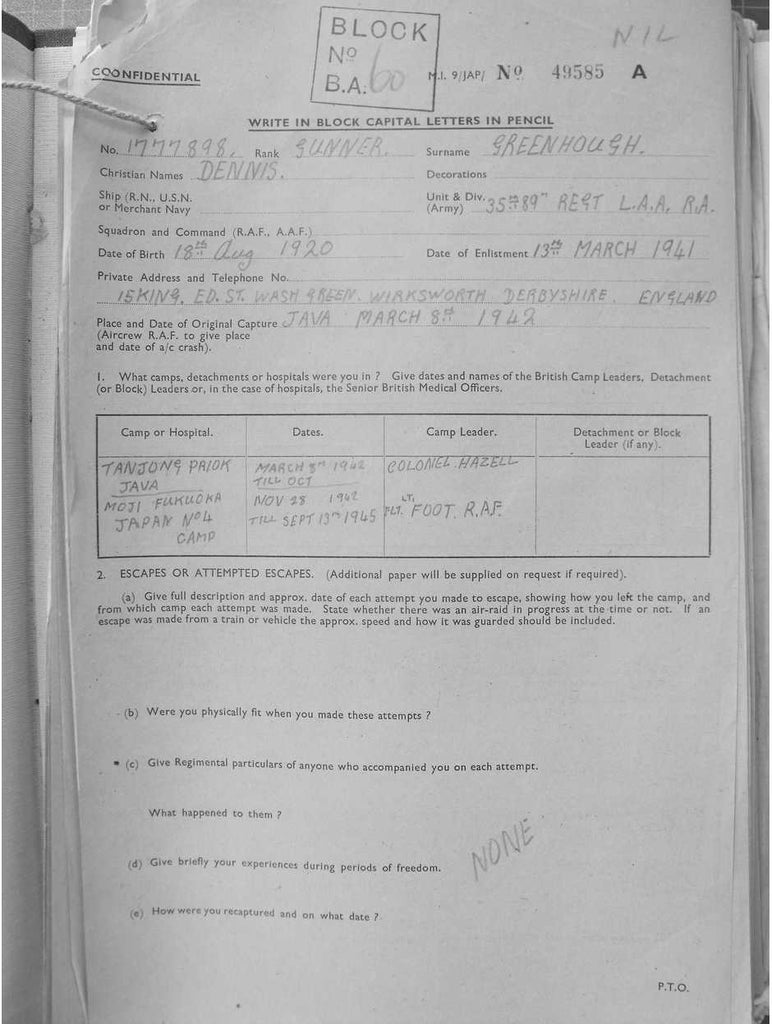 BLOCK
Nº
B.A. 60
NIL
COONFIDENTIAL
M.I. 9/JAP/ Nº 49585 A
WRITE IN BLOCK CAPITAL LETTERS IN PENCIL
No. 1777898. Rank GUNNER. Surname GREENHOUGH.
Christian Names DENNIS. Decorations
Ship (R.N., U.S.N.
or Merchant Navy
Unit & Div. 35TH 89TH REGT L.A.A. R.A.
(Army)
Squadron and Command (R.A.F., A.A.F.)
Date of Birth 18th Aug 1920 Date of Enlistment 13th MARCH 1941
Private Address and Telephone No.
15 KING. ED. ST. WASH GREEN. WIRKSWORTH DERBYSHIRE. ENGLAND
Place and Date of Original Capture JAVA MARCH 8TH 1942
(Aircrew R.A.F. to give place
and date of a/c crash).
1. What camps, detachments or hospitals were you in ? Give dates and names of the British Camp Leaders, Detachment
(or Block) Leaders or, in the case of hospitals, the Senior British Medical Officers.
Camp or Hospital. Dates. Camp Leader. Detachment or Block
Leader (if any).
TANJONG PRIOK MARCH 1942 COLONEL. HAZELL
JAVA TILL OCT
MOJI FUKUOKA NOV 28 1942 FLT. LT. FOOT. R.A.F.
JAPAN Nº4 TILL SEPT 13TH 1945
CAMP
2. ESCAPES OR ATTEMPTED ESCAPES. (Additional paper will be supplied on request if required).
(a) Give full description and approx. date of each attempt you made to escape, showing how you left the camp, and
from which camp each attempt was made. State whether there was an air-raid in progress at the time or not. If an
escape was made from a train or vehicle the approx. speed and how it was guarded should be included.
(b) Were you physically fit when you made these attempts ?
(c) Give Regimental particulars of anyone who accompanied you on each attempt.
What happened to them ?
NONE
(d) Give briefly your experiences during periods of freedom.
(e) How were you recaptured and on what date ?
P.T.O.